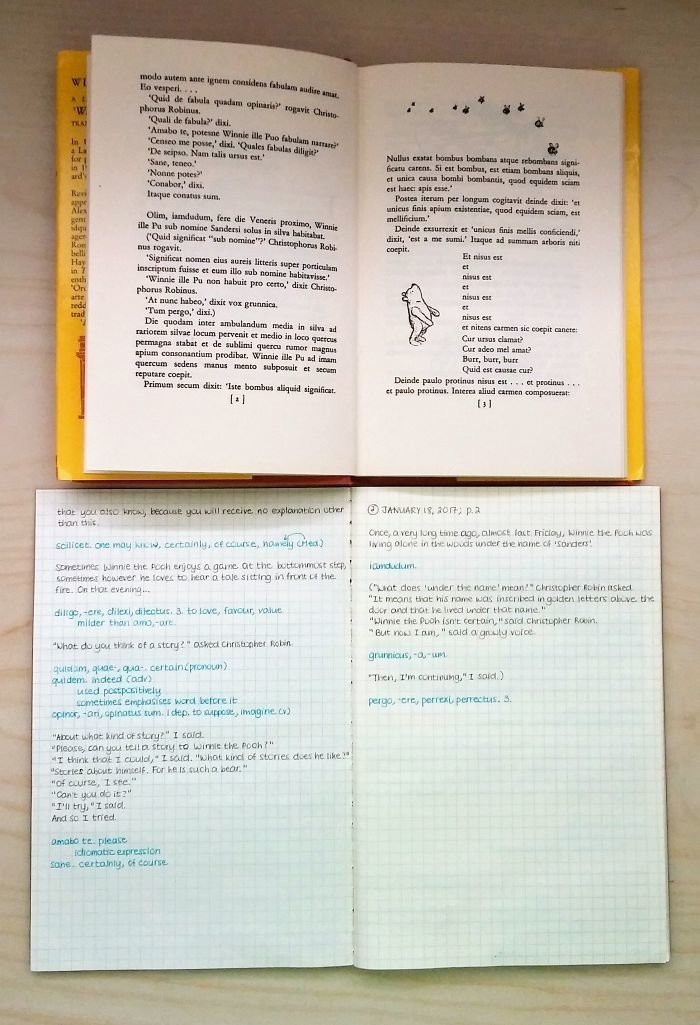 modo autem ante ignem considens fabulam audire amat.
Eo vesperi. . . .
'Quid de fabula quadam opinaris?' rogavit Christo-
phorus Robinus.
'Quali de fabula?' dixi.
'Amabo te, potesne Winnie ille Puo fabulam narrare?'
'Censeo me posse,' dixi. 'Quales fabulas diligit?'
'De seipso. Nam talis ursus est.'
'Sane, teneo.'
'Nonne potes?'
'Conabor,' dixi.
Itaque conatus sum.
Olim, iamdudum, fere die Veneris proximo, Winnie
ille Pu sub nomine Sandersi solus in silva habitabat.
('Quid significat "sub nomine"?' Christophorus Robi-
nus rogavit.
'Significat nomen eius aureis litteris super porticulam
inscriptum fuisse et eum illo sub nomine habitavisse.'
'Winnie ille Pu non habuit pro certo,' dixit Christo-
phorus Robinus.
'At nunc habeo,' dixit vox grunnica.
'Tum pergo,' dixi.)
Die quodam inter ambulandum media in silva ad
rariorem silvae locum pervenit et medio in loco quercus
permagna stabat et de sublimi quercu rumor magnus
apium consonantium prodibat. Winnie ille Pu ad imam
quercum sedens manus mento subposuit et secum
reputare coepit.
Primum secum dixit: 'Iste bombus aliquid significat.
[ 2 ]
Nullus exstat bombus bombans atque rebombans signi-
ficatu carens. Si est bombus, est etiam bombans aliquis,
et unica causa bombi bombantis, quod equidem sciam
est haec: apis esse.'
Postea iterum per longum cogitavit deinde dixit: 'et
unicus finis apium existentiae, quod equidem sciam, est
mellificium.'
Deinde exsurrexit et 'unicus finis mellis conficiendi,'
dixit, 'est a me sumi.' Itaque ad summam arboris niti
coepit.
Et nisus est
et
nisus est
et
nisus est
et
nisus est
et nitens carmen sic coepit canere:
Cur ursus clamat?
Cur adeo mel amat?
Burr, burr, burr
Quid est causae cur?
Deinde paulo protinus nisus est . . . et protinus . . .
et paulo protinus. Interea aliud carmen composuerat:
[ 3 ]
that you also know, because you will receive no explanation other
than this.
scilicet. one may know, certainly, of course, namely (Med.)
Sometimes Winnie the Pooh enjoys a game at the bottommost step,
sometimes however he loves to hear a tale sitting in front of the
fire. On that evening...
diligo, -ere, dilexi, dilectus. 3. to love, favour, value
milder than amo, -are.
"What do you think of a story?" asked Christopher Robin.
quidam, quae-, quo-. certain (pronoun)
quidem. indeed (adv)
used postpositively
sometimes emphasises word before it
opinor, -ari, opinatus sum. 1 dep. to suppose, imagine (v)
"About what kind of story?" I said.
"Please, can you tell a story to Winnie the Pooh?"
"I think that I could," I said. "What kind of stories does he like?"
"Stories about himself. For he is such a bear."
"Of course, I see."
"Can't you do it?"
"I'll try," I said.
And so I tried.
amabo te. please
idiomatic expression
sane. certainly, of course
② JANUARY 18, 2017; p.2
Once, a very long time ago, almost last Friday, Winnie the Pooh was
living alone in the woods under the name of 'Sanders'.
iamdudum.
("What does 'under the name' mean?" Christopher Robin asked.
"It means that his name was inscribed in golden letters above the
door and that he lived under that name."
"Winnie the Pooh isn't certain," said Christopher Robin.
"But now I am," said a growly voice.
grunnicus, -a, -um.
"Then, I'm continuing," I said.)
pergo, -ere, perrexi, perrectus. 3.